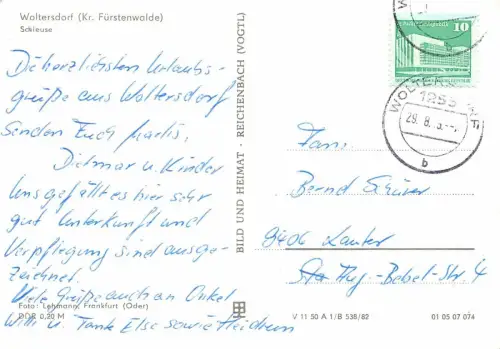 Woltersdorf (Kr. Fürstenwalde)
Schleuse
Die herzlichsten Urlaubs-
grüße aus Woltersdorf
senden Euch
Dietmar u. Kinder
Uns gefällt es hier sehr
gut Unterkunft und
Verpflegung sind ausge-
zeichnet.
Viele Grüße auch an Onkel
Willi u. Tante Else sowie
Foto: Lehmann, Frankfurt (Oder)
DDR 0,20 M
BILD UND HEIMAT · REICHENBACH (VOGTL)
10
WOLTERSDORF
1255
29. 8.
b
Fam.
Bernd
9406 Lauter
Aug.-Bebel-Str. 4
V 11 50 A 1/B 538/82
01 05 07 074